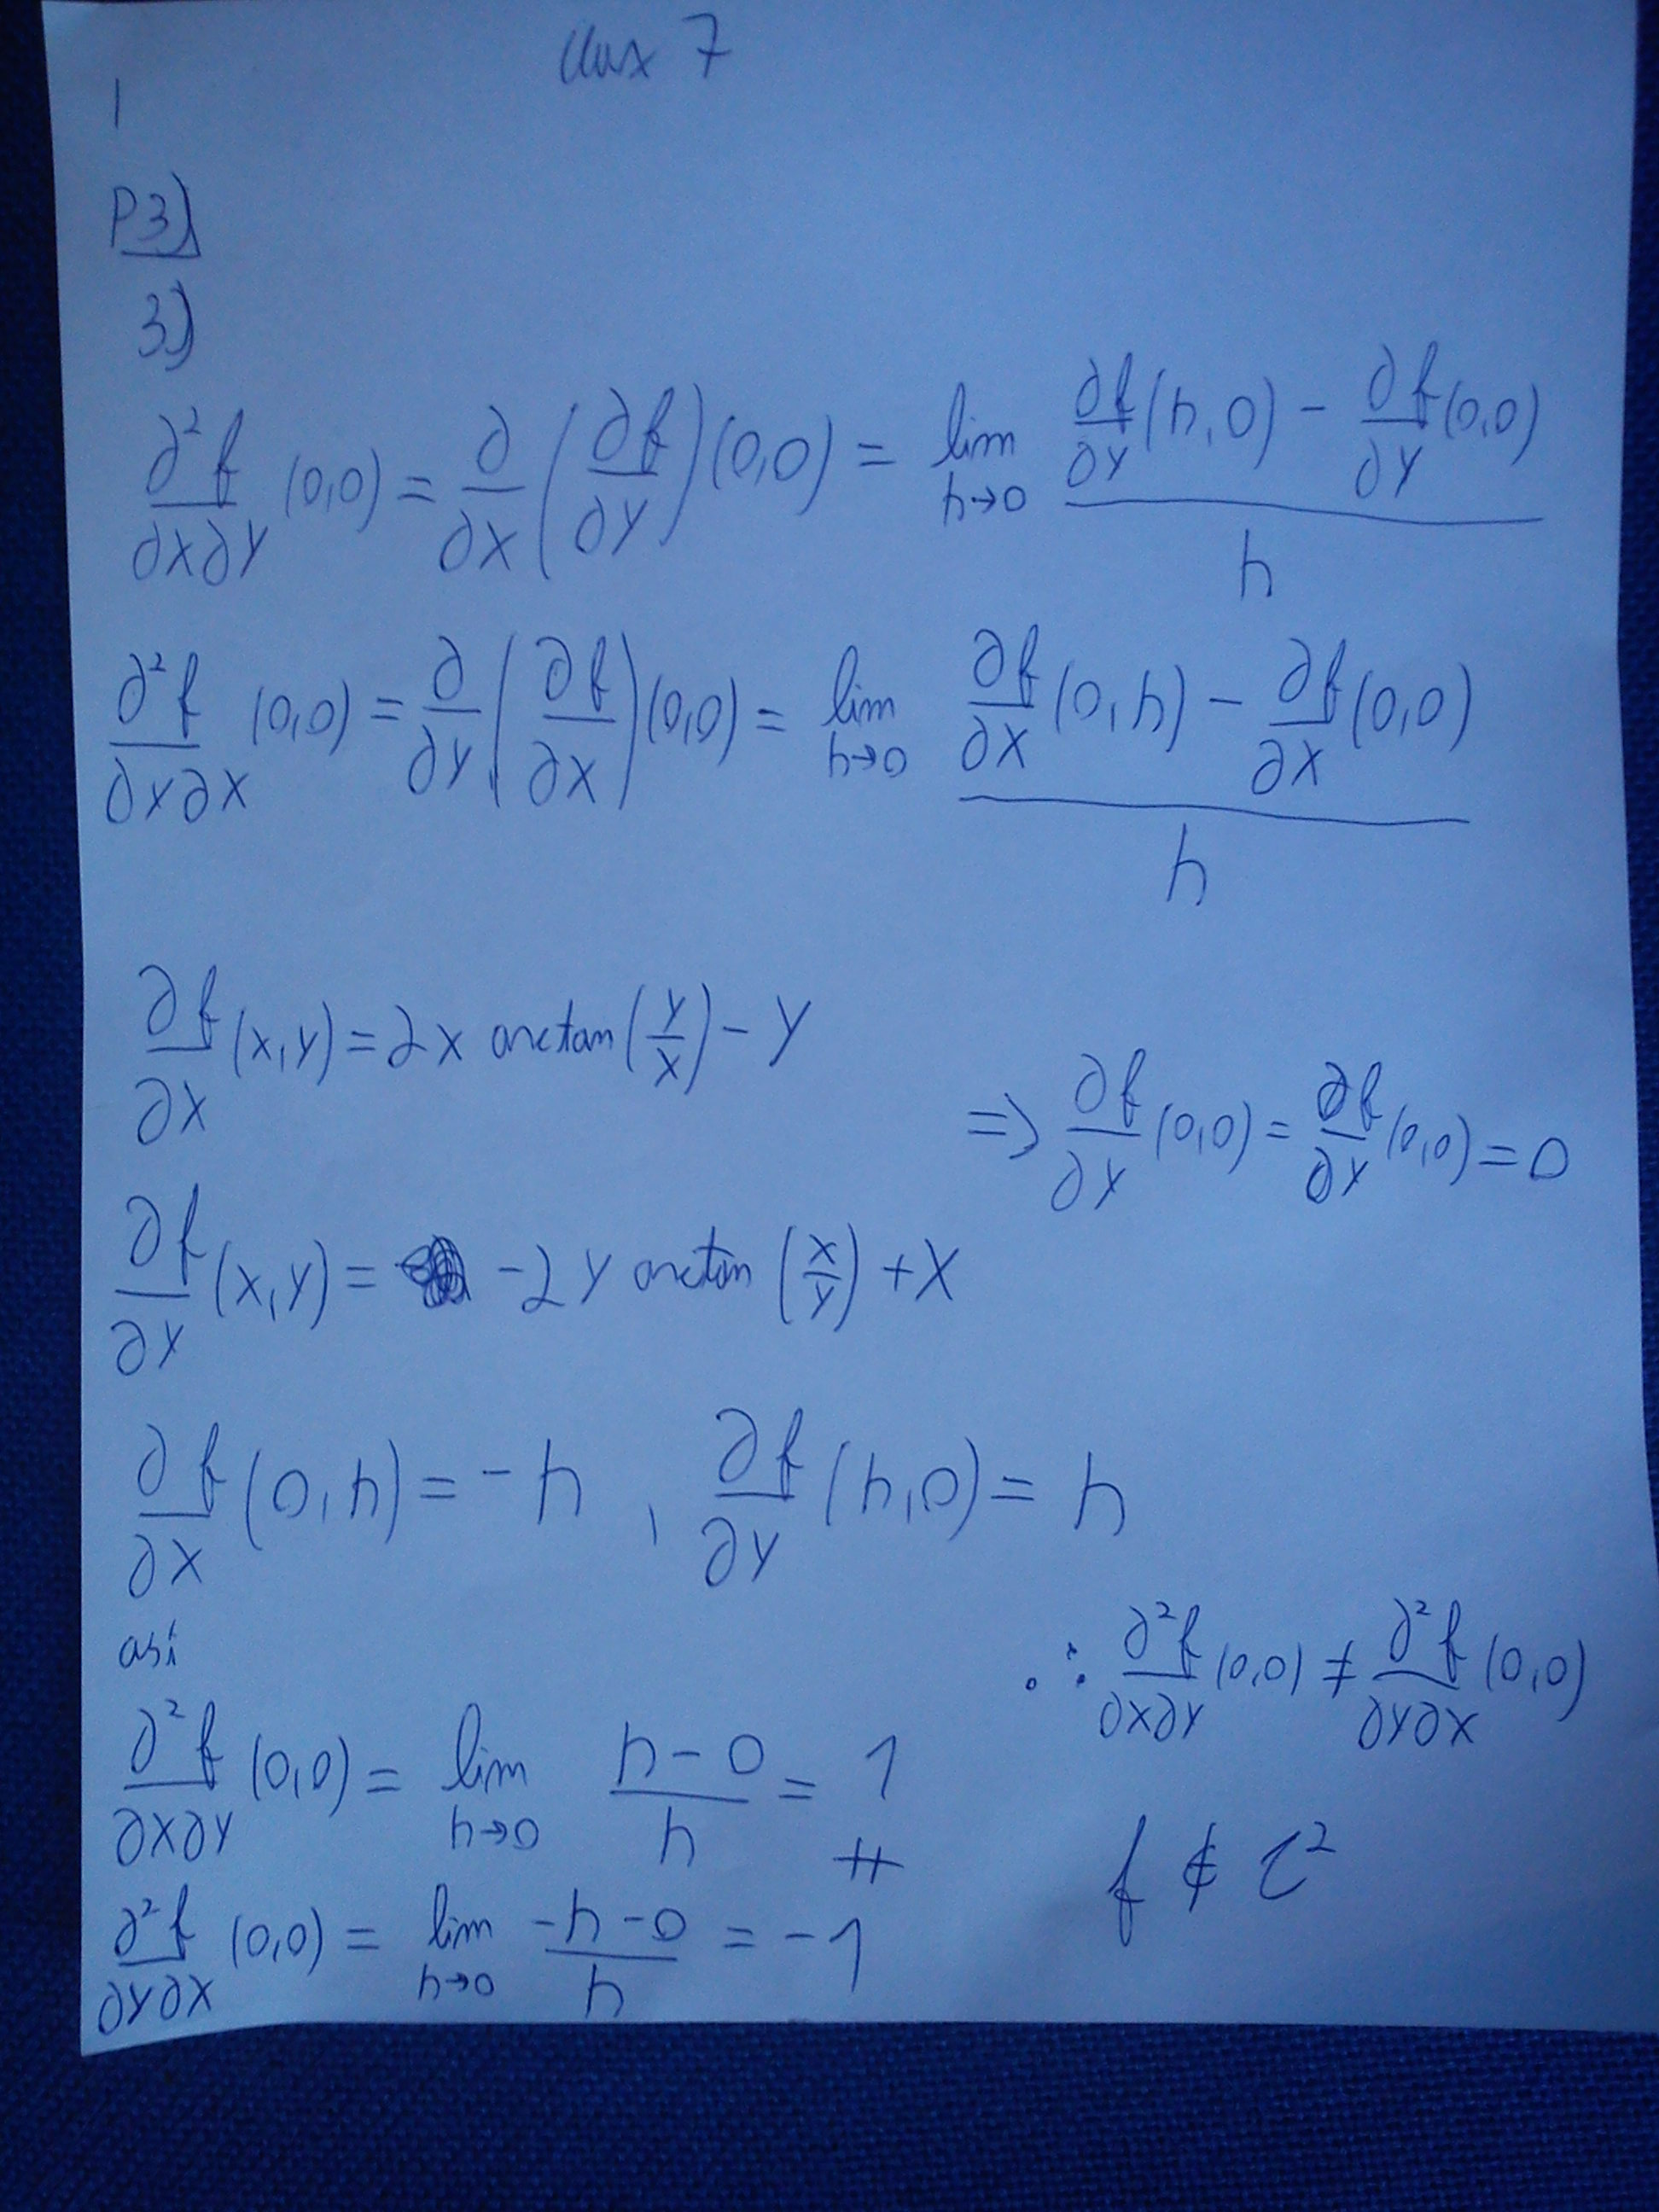 Clase 7
1
P3)
3)
∂²f/∂x∂y (0,0) = ∂/∂x (∂f/∂y)(0,0) = lim h→0 (∂f/∂y (h,0) - ∂f/∂y (0,0))/h
∂²f/∂y∂x (0,0) = ∂/∂y (∂f/∂x)(0,0) = lim h→0 (∂f/∂x (0,h) - ∂f/∂x (0,0))/h
∂f/∂x (x,y) = 2x arctan(y/x) - y
⇒ ∂f/∂y (0,0) = ∂f/∂x (0,0) = 0
∂f/∂y (x,y) = -2y arctan(x/y) + x
∂f/∂x (0,h) = -h , ∂f/∂y (h,0) = h
así
∴ ∂²f/∂x∂y (0,0) ≠ ∂²f/∂y∂x (0,0)
∂²f/∂x∂y (0,0) = lim h→0 (h-0)/h = 1
f ∉ C²
∂²f/∂y∂x (0,0) = lim h→0 (-h-0)/h = -1